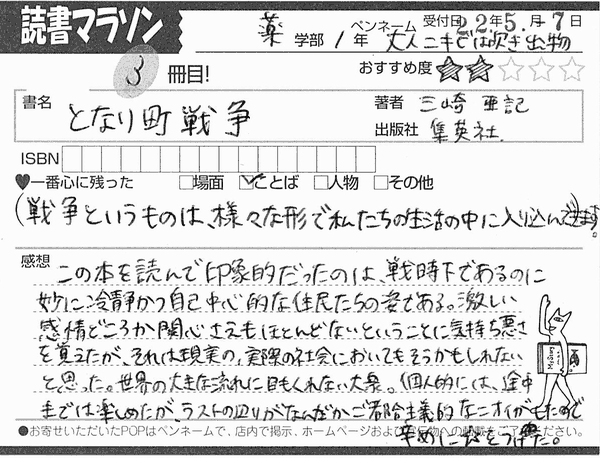 読書マラソン
薬 学部 1 年 ペンネーム 大人ニキビは吹き出物 受付日 22年5月7日
3 冊目!
おすすめ度 ★★☆☆☆
書名 となり町戦争
著者 三崎亜記
出版社 集英社
ISBN
♥一番心に残った □場面 ☑ことば □人物 □その他
(戦争というものは、様々な形で私たちの生活の中に入り込んできます。)
感想
この本を読んで印象的だったのは、戦時下であるのに
妙に冷静かつ自己中心的な住民たちの姿である。激しい
感情どころか関心さえもほとんどないということに気持ち悪さ
を覚えたが、それは現実の、実際の社会においてもそうかもしれない
と思った。世界の大きな流れに目もくれない大衆。個人的には、途中
までは楽しめたが、ラストの辺りがなんだかご都合主義的なニオイがしたので
辛めに星をつけた。
●お寄せいただいたPOPはペンネームで、店内で掲示、ホームページおよび